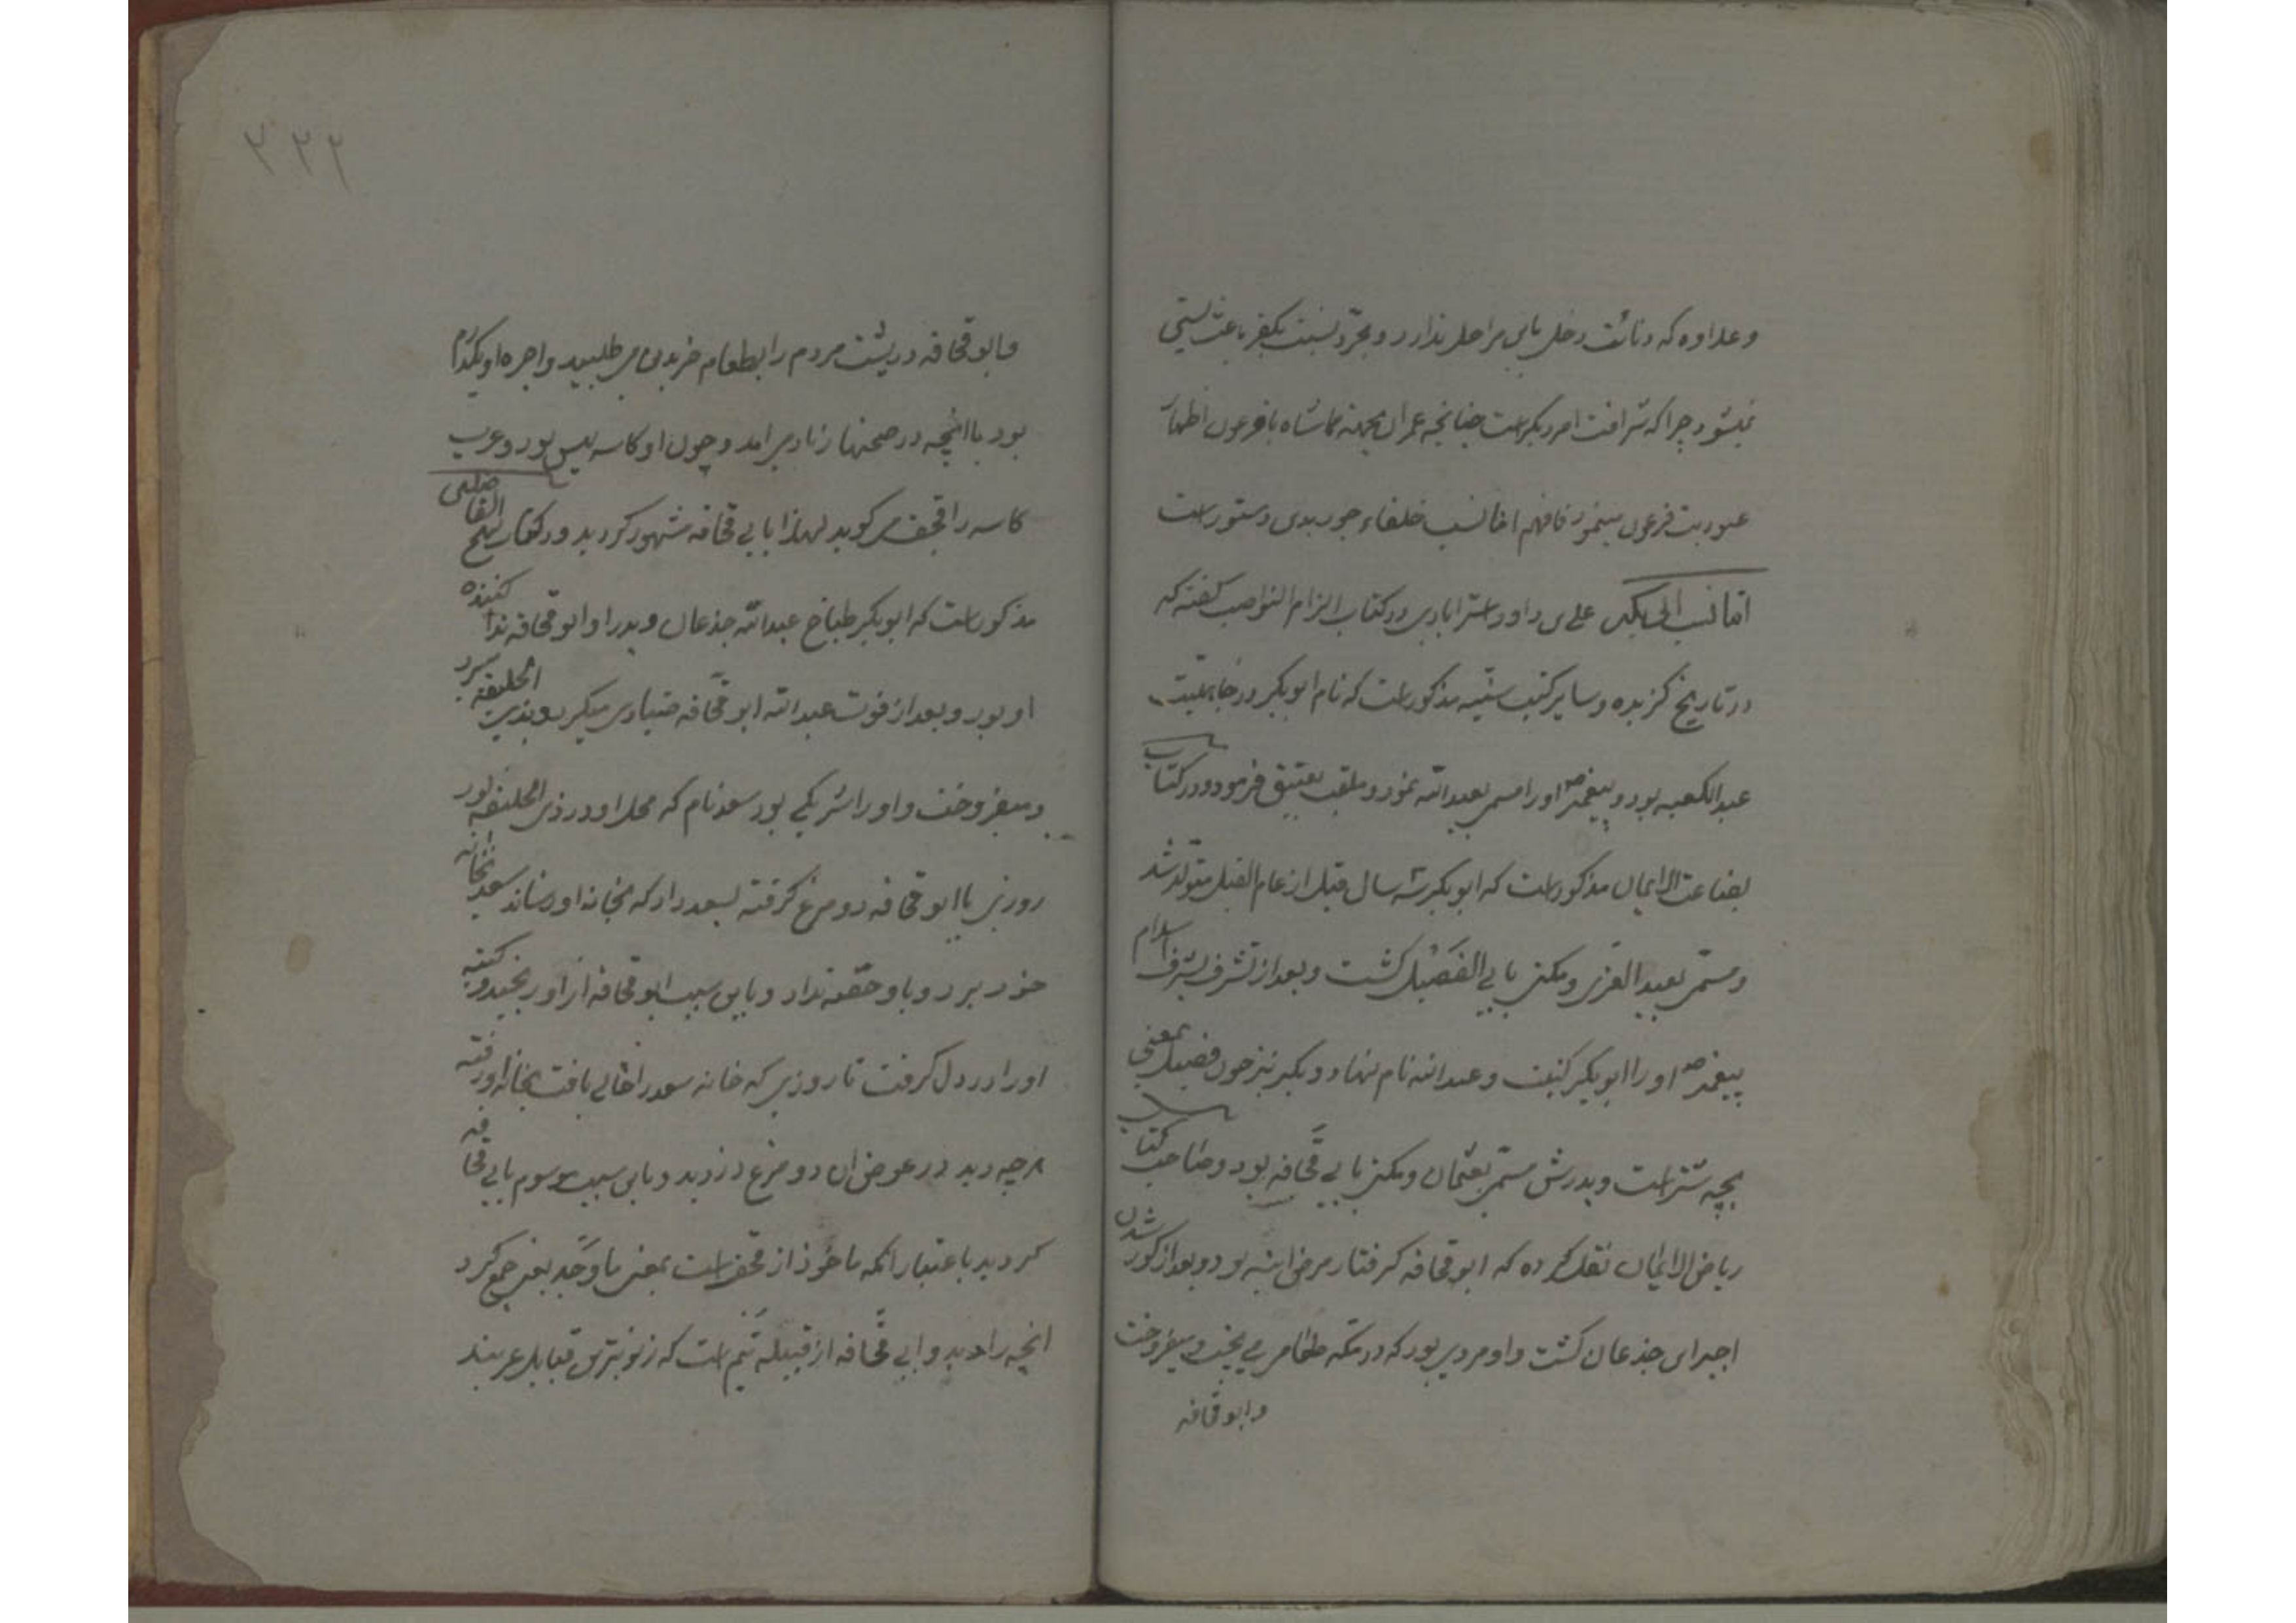 وعلاوه که دنائت دخلی باین مراحل ندارد و بمجرد نسبت بکفر باعث پستی
نمیشود چرا که شرافت امر دیگر است چنانچه عمران بجهة مماشاه با فرعون اظهار
عبودیت فرعون مینمود فافهم اما نسب خلفاء جور بدین دستور است
اما نسب ابی بکر علی بن داود استرابادی در کتاب الزام النواصب گفته که
در تاریخ گزیده و سایر کتب سنیه مذکور است که نام ابوبکر در جاهلیت
عبدالکعبه بود و پیغمبر ص اورا مسمی بعبدالله نمود و ملقب بعتیق فرمود و در کتاب
بضاعت الایمان مذکور است که ابوبکر سه سال قبل از عام الفیل متولد شد
و مسمی بعبد العزی و مکنی بابی الفصیل گشت و بعد از تشرف بشرف اسلام
پیغمبر ص اورا ابوبکر کنیت و عبدالله نام نهاد و بکر نیز چون فصیل بمعنی
بچه شتر است و پدرش مسمی بعثمان و مکنی بابی قحافه بود و صاحب کتاب
ریاض الایمان نقل کرده که ابو قحافه گرفتار مرض ابنه بود و بعد از کور شدن
اجیر ابن جذعان گشت و او مردی بود که در مکه طعام می پخت و میفروخت
و ابو قحافه
و ابو قحافه در پشت مردم را بطعام خریدن می طلبید و اجره او یکدرم
بود با انچه در صحنها زیاد می امد و چون او کاسه لیس بود و عرب
کاسه را قحف می گوید لهذا بابی قحافه مشهور گردید و در کتاب نهج الفاضلین
مذکور است که ابوبکر طباخ عبدالله جذعان و پدر او ابو قحافه ندا کننده
او بود و بعد از فوت عبدالله ابو قحافه صیادی میکرد و بذی الحلیفه می برد
و میفروخت و اورا شریکی بود سعد نام که محل او در ذی الحلیفه بود
روزی با ابو قحافه دو مرغ گرفته بسعد داد که بخانه او رساند سعد بخانه
خود برد و باو حصه نداد و باین سبب ابو قحافه از او رنجید و کینه
اورا در دل گرفت تا روزی که خانه سعد را خالی یافت بخانه او رفته
هر چه دید در عوض ان دو مرغ دزدید و باین سبب موسوم بابی قحافه
گردید باعتبار انکه ماخوذ از قحف است بمعنی ما وجد یعنی جمع کرد
انچه را دید و ابی قحافه از قبیله تیم است که زبونترین قبایل عربند
۳۳۲